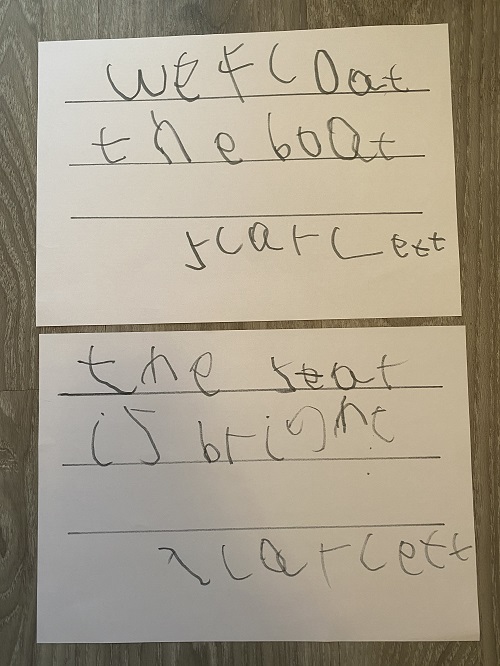 we float
the boat
scarlett
the seat
is bright
scarlett